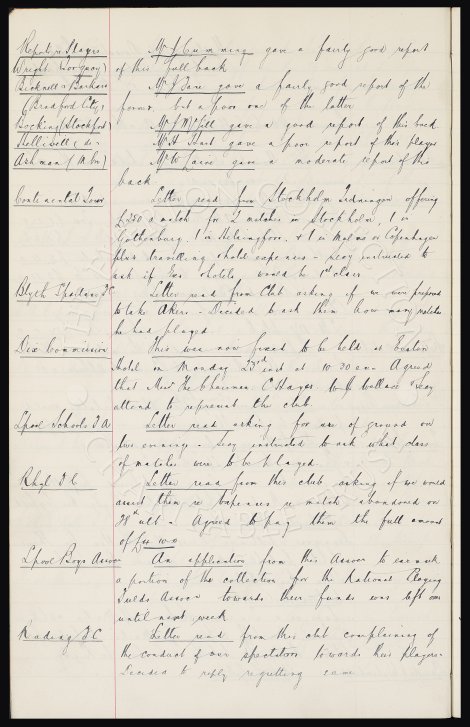 Report re Players Mr J Cumming gave a fairly good report
Wright (Torquay) of this full back
Bicknell & Barkas Mr J Dare gave a fairly good report of the
(Bradford City) former but a poor one of the latter
Bocking (Stockport) Mr J McGill gave a good report of this back
Helliwell ( do Mr H Hart gave a poor report of this player
Ashman ( M Cr) Mr W gave a moderate report of this
back
Continental Tour Letter read from Stockholm Tidningen offering
£250 a match for 2 matches in Stockholm, 1 in
Gothenburg, 1 in Helsingfors, & 1 in Malmo or Copenhagen
plus travelling & hotel expenses - Secy instructed to
ask if the hotels would be 1st class
Blyth Spartans FC Letter read from Club asking if we were prepared
to take Akers - Decided to ask them how many matches
he had played
Dix Commission This was now fixed to be held at Euston
Hotel on Monday 23rd inst at 10 30 am Agreed
that Messrs The Chairman, C Hayes, & Secy
attend to represent the club.
Lpool Schools F A Letter read asking for use of ground on
five evenings - Secy instructed to ask what class
of matches were to be played.
Rhyl F C Letter read from this club asking if we would
assist them re expenses re match abandoned on
28th ult - Agreed to pay them the full amount
of
Lpool Boys Assocn An application from this Assocn to earmark
a portion of the collection for the National Playing
Fields Assocn towards their funds was left over
until next week
Reading F C Letter read from this club complaining of
the conduct of our spectators towards their players -
Decided to reply regretting same